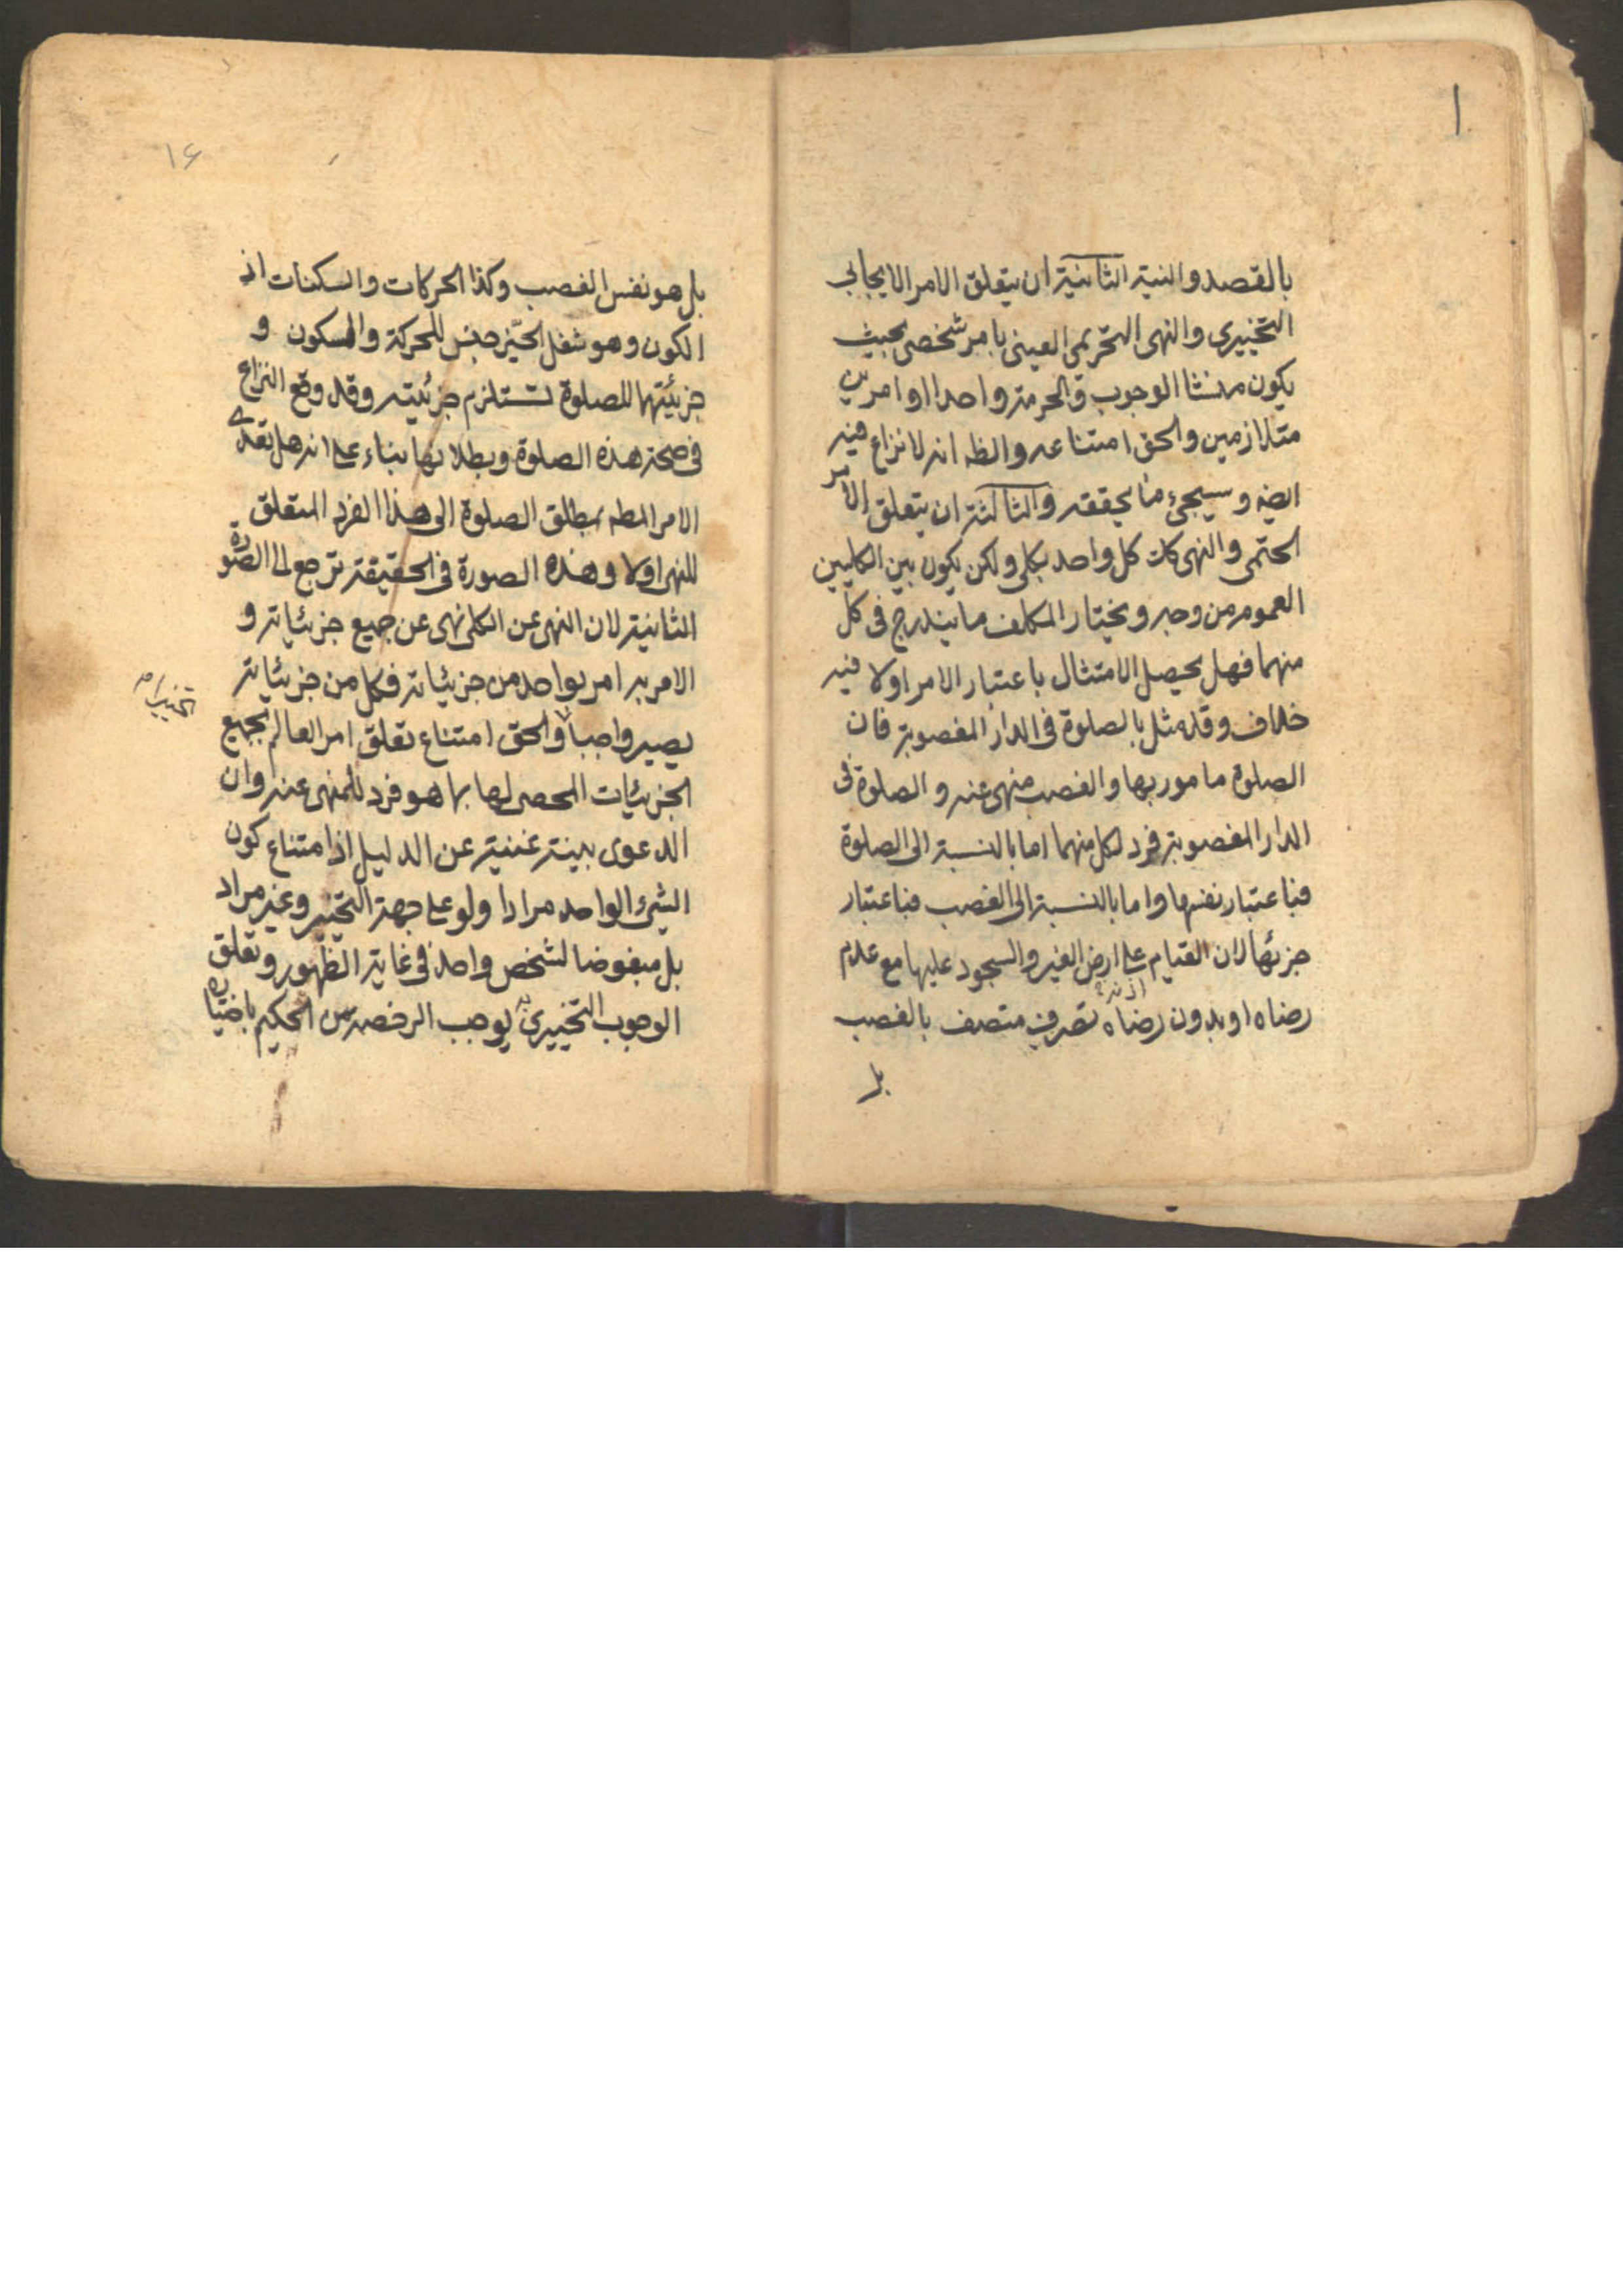 ١
بالقصد والنية الثانية ان يتعلق الامر الايجابي
التخييري والنهى التحريمى العينى بامر شخصى بحيث
يكون منشا الوجوب والحرمة واحدا او امرين
متلازمين والحق امتناعه والظه انه لا نزاع فيه
ايضه وسيجئ ما يحققه والثالثة ان يتعلق الامر
الحتمى والنهى كك كل واحد بكلى ولكن يكون بين الكليين
العموم من وجه ويختار المكلف ما يندرج فى كل
منهما فهل يحصل الامتثال باعتبار الامر اولا فيه
خلاف وقد مثل بالصلوة فى الدار المغصوبة فان
الصلوة مامور بها والغصب منهى عنه والصلوة فى
الدار المغصوبة فرد لكل منهما اما بالنسبة الى الصلوة
فباعتبار نفسها واما بالنسبة الى الغصب فباعتبار
جزئها لان القيام على ارض الغير والسجود عليها مع عدم
اذنه
رضاه او بدون رضاه تصرف متصف بالغصب
بل
١۶
بل هو نفس الغصب وكذا الحركات والسكنات اذ
الكون وهو شغل الحيّز جنس للحركة والسكون و
جزئيتها للصلوة تستلزم جزئيته وقد وقع النزاع
فى صحة هذه الصلوة وبطلانها بناء على انه هل تعدى
الامر المطه بمطلق الصلوة الى هذا الفرد المتعلق
للنهى اولا وهذه الصورة فى الحقيقة ترجع الى الصورة
الثانية لان النهى عن الكلى نهى عن جميع جزئياته و
الامر به امر بواحد من جزئياته فكل من جزئياته
يصير واجبا والحق امتناع تعلق امر العالم بجميع
الجزئيات المحصى لها بما هو فرد للمنهى عنه وان
الدعوى بينة غنية عن الدليل اذ امتناع كون
الشئ الواحد مرادا ولو على جهة التخيير وغير مراد
بل مبغوضا لشخص واحد فى غاية الظهور وتعلق
الوجوب التخييري به يوجب الرخصة من الحكيم باختياره